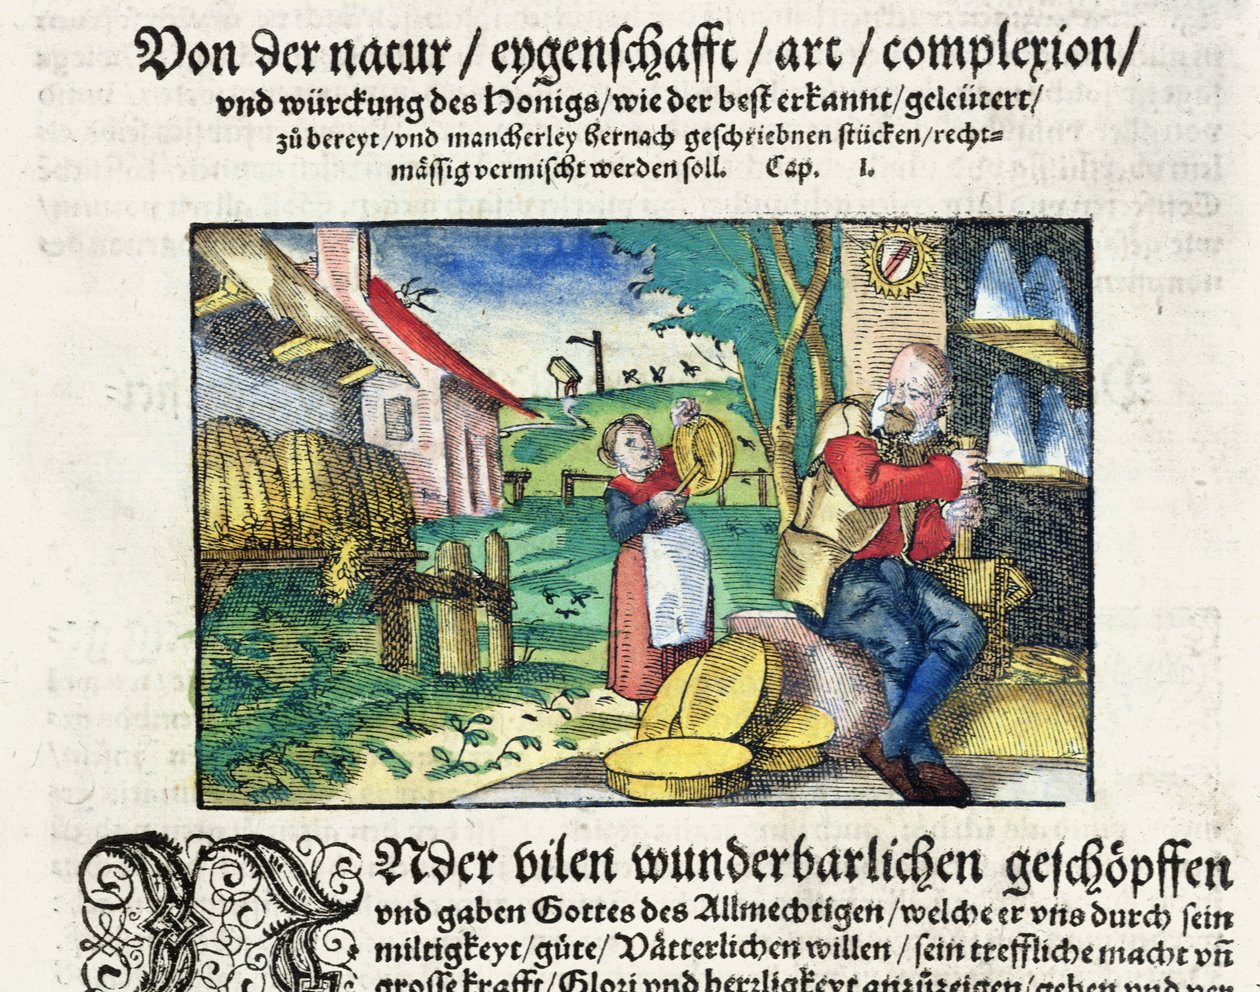 Von der natur / eygenschafft / art / complexion /
vnd würckung des Honigs / wie der best erkannt / geleütert /
zů bereyt / vnd mancherley hernach geschriebnen stücken / recht=
mässig vermischt werden soll. Cap. I.
VNder vilen wunderbarlichen geschöpffen
vnd gaben Gottes des Allmechtigen / welche er vns durch sein
miltigkeyt / güte / Vätterlichen willen / sein treffliche macht vñ
grosse krafft / Glori vnd herrligkeyt anzůzeigen / geben vnd ver